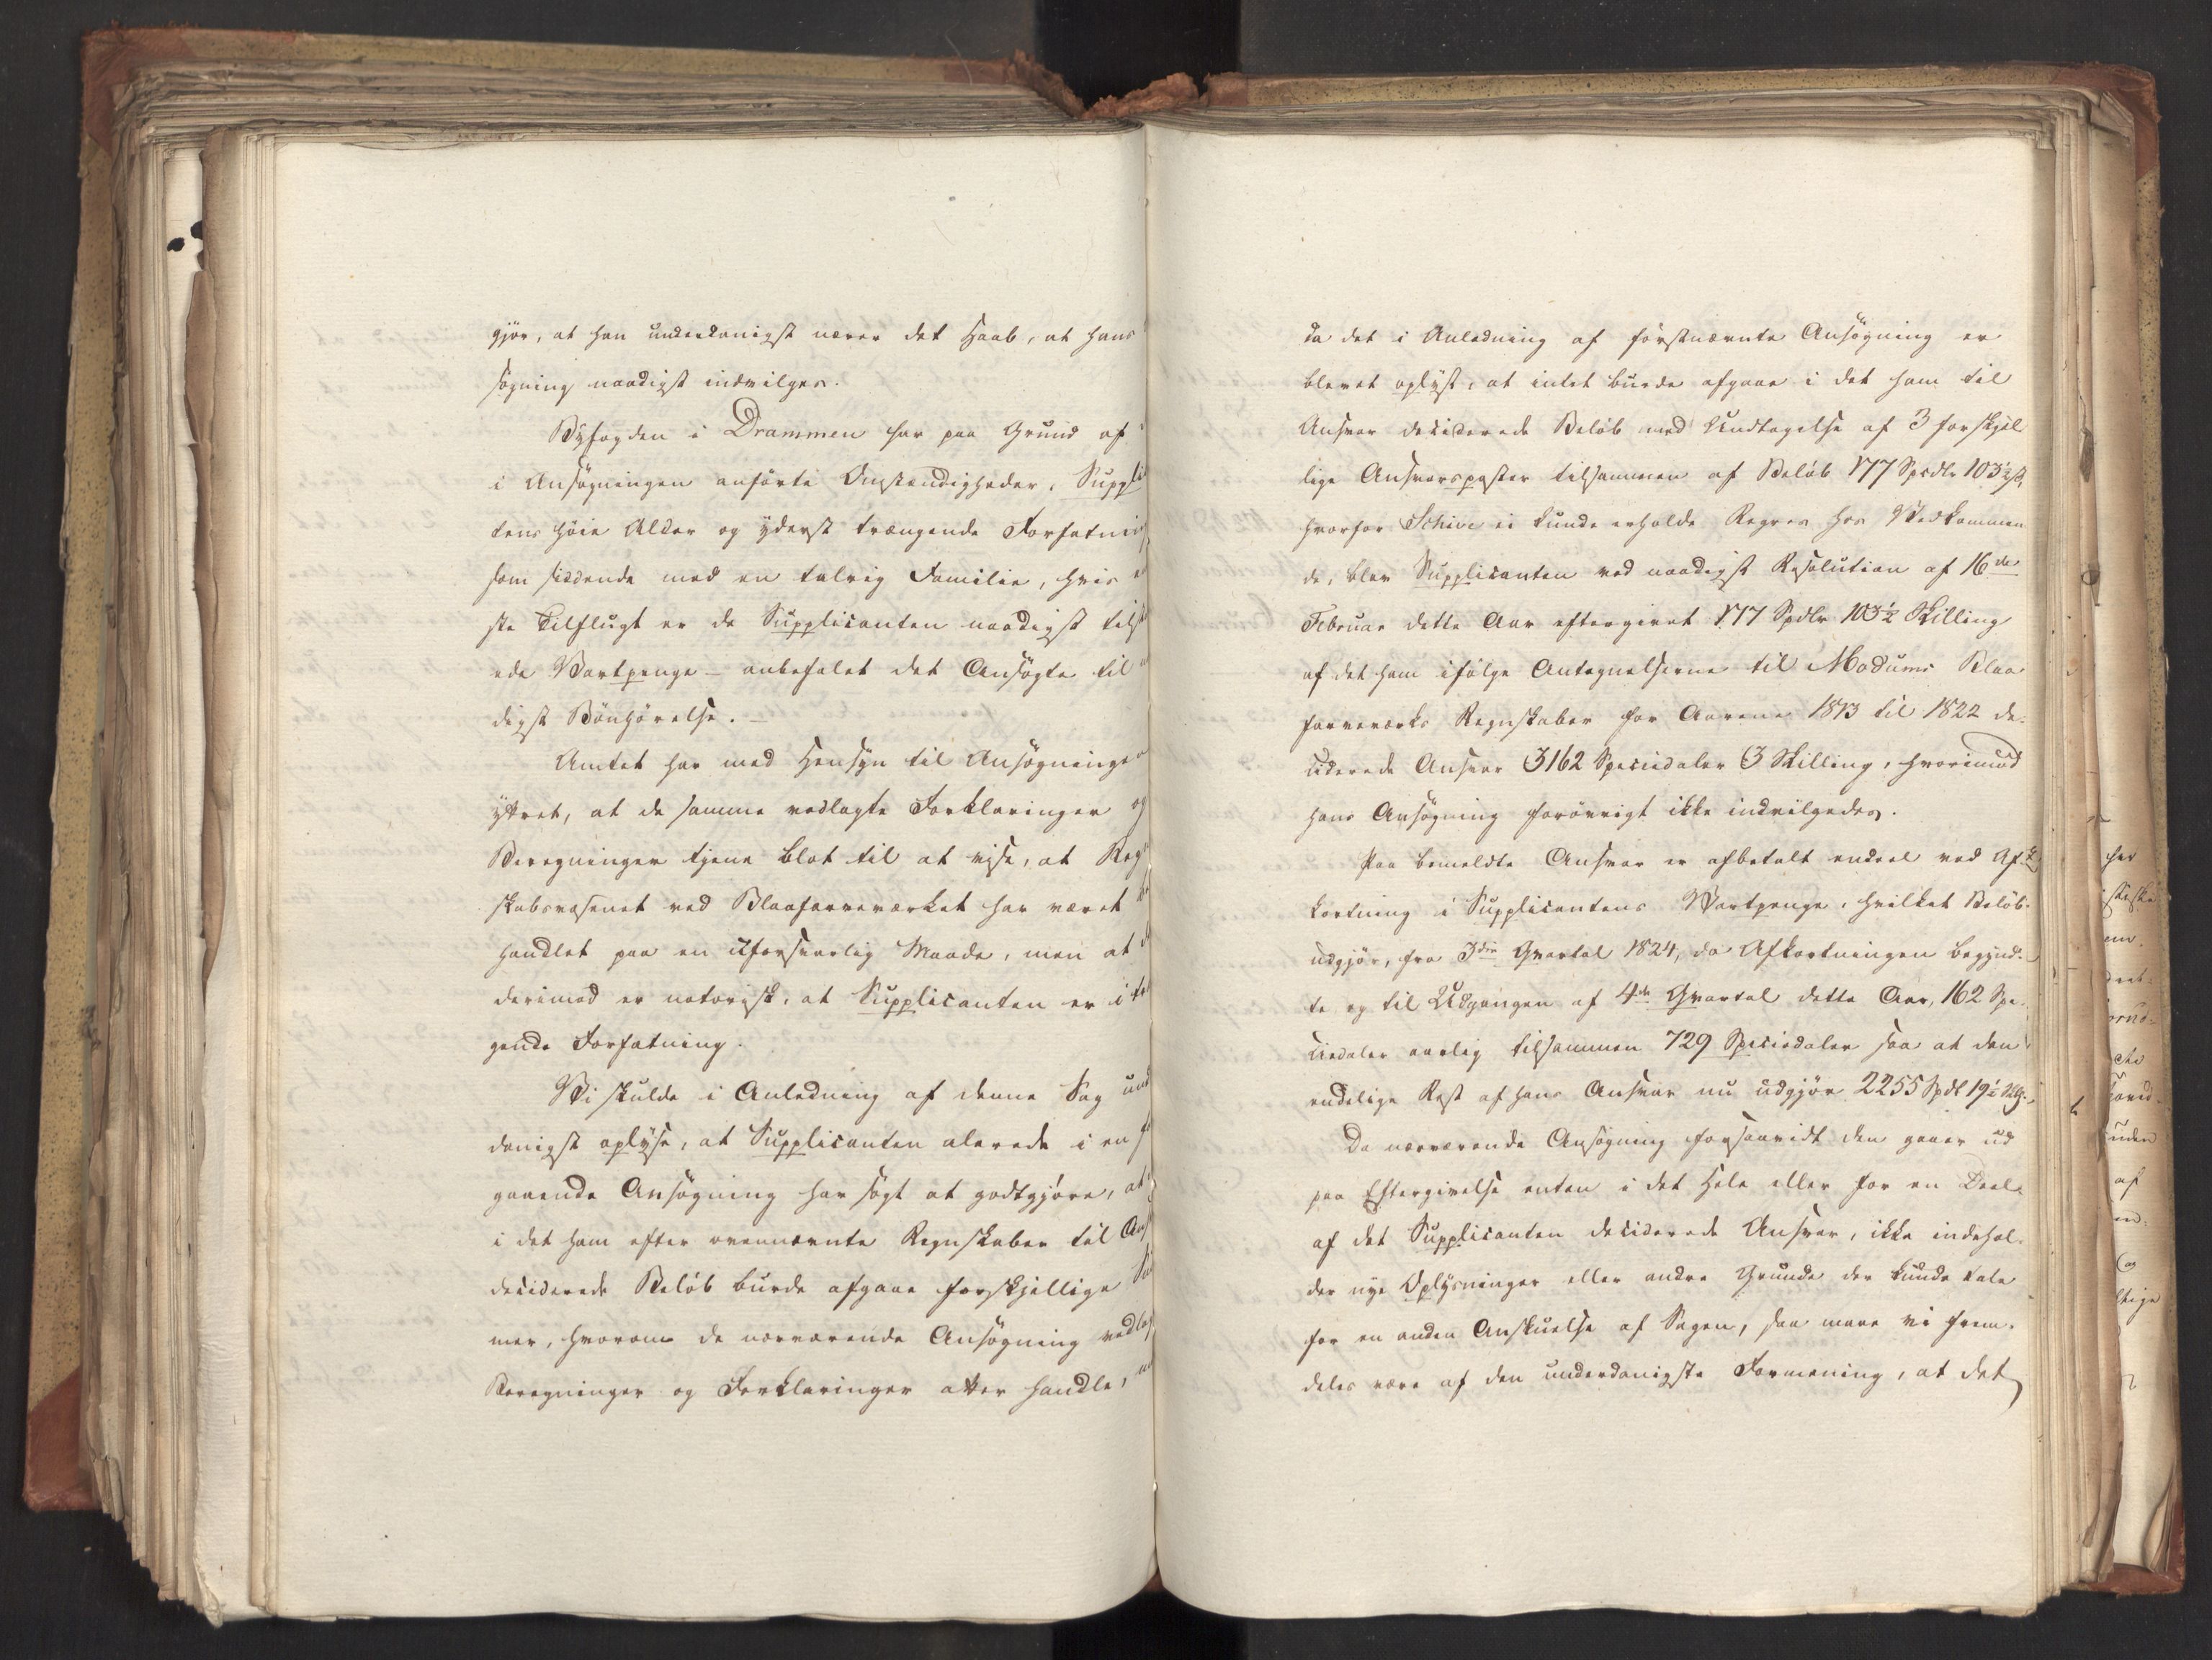 gjør, at han underdanigst nærer det Haab, at hans
søgning naadigst indvilges.
Byfogden i Drammen har paa Grund af
i Ansøgningen anførte Omstændigheder, Suppli
tens høie Alder og yderst trængende Forfatning
som siddende med en talrig Familie, hvis
ste Tilflugt er de Supplicanten naadigst tilst
ede Vartpenge – anbefalet det Ansøgte til
digst Bønhørelse. –
Amtet har med Hensyn til Ansøgningen
yttret, at de samme vedlagte Forklaringer og
Beregninger tjene blot til at vise, at Regn
skabsvæsenet ved Blaafarveværket har været
handlet paa en uforsvarlig Maade, men at
derimod er notorisk, at Supplicanten er i træn
gende Forfatning.
Vi skulde i Anledning af denne Sag und
danigst oplyse, at Supplicanten alerede i en f
gaaende Ansøgning har søgt at godtgjøre, at
i det ham efter ovennævnte Regnskaber til Ans
deciderede Beløb burde afgaae forskjellige
mer, hvorom de nærværende Ansøgning vedlag
Beregninger og Forklaringer atter handle,
da det i Anledning af førstnævnte Ansøgning er
blevet oplyst, at intet burde afgaae i det ham til
Ansvar deciderede Beløb med Undtagelse af 3 forskjel
lige Ansvarsposter tilsammen af Beløb 177 Spdlr 103½ s,
hvorfor Schive ei kunde erholde Regres hos Vedkommen
de, blev Supplicanten ved naadigst Resolution af 16de
Februar dette Aar eftergivet 177 Spdlr 103½ Skilling
af det ham ifølge Antegnelserne til Modums Blaa
farveværks Regnskaber for Aarene 1813 til 1822 de-
ciderede Ansvar 3162 Speciedaler 3 Skilling, hvorimod
hans Ansøgning forøvrigt ikke indvilgedes.
Paa bemeldte Ansvar er afbetalt endeel ved Af-
kortning i Supplicantens Vartpenge, hvilket Beløb
udgjør, fra 3die Qvartal 1824, da Afkortningen begynd-
te og til Udgangen af 4de Qvartal dette Aar, 162 Spe-
ciedaler aarlig tilsammen 729 Speciedaler saa at den
endelige Rest af hans Ansvar nu udgjør 2255 Spdl 19½ sk.
Da nærværende Ansøgning forsaavidt den gaaer ud
paa Eftergivelse enten i det Hele eller for en Deel
af det Supplicanten deciderede Ansvar, ikke indehol-
der nye Oplysninger eller andre Grunde der kunde tale
for en anden Anskuelse af Sagen, saa maae vi frem-
deles være af den underdanigste Formening, at det